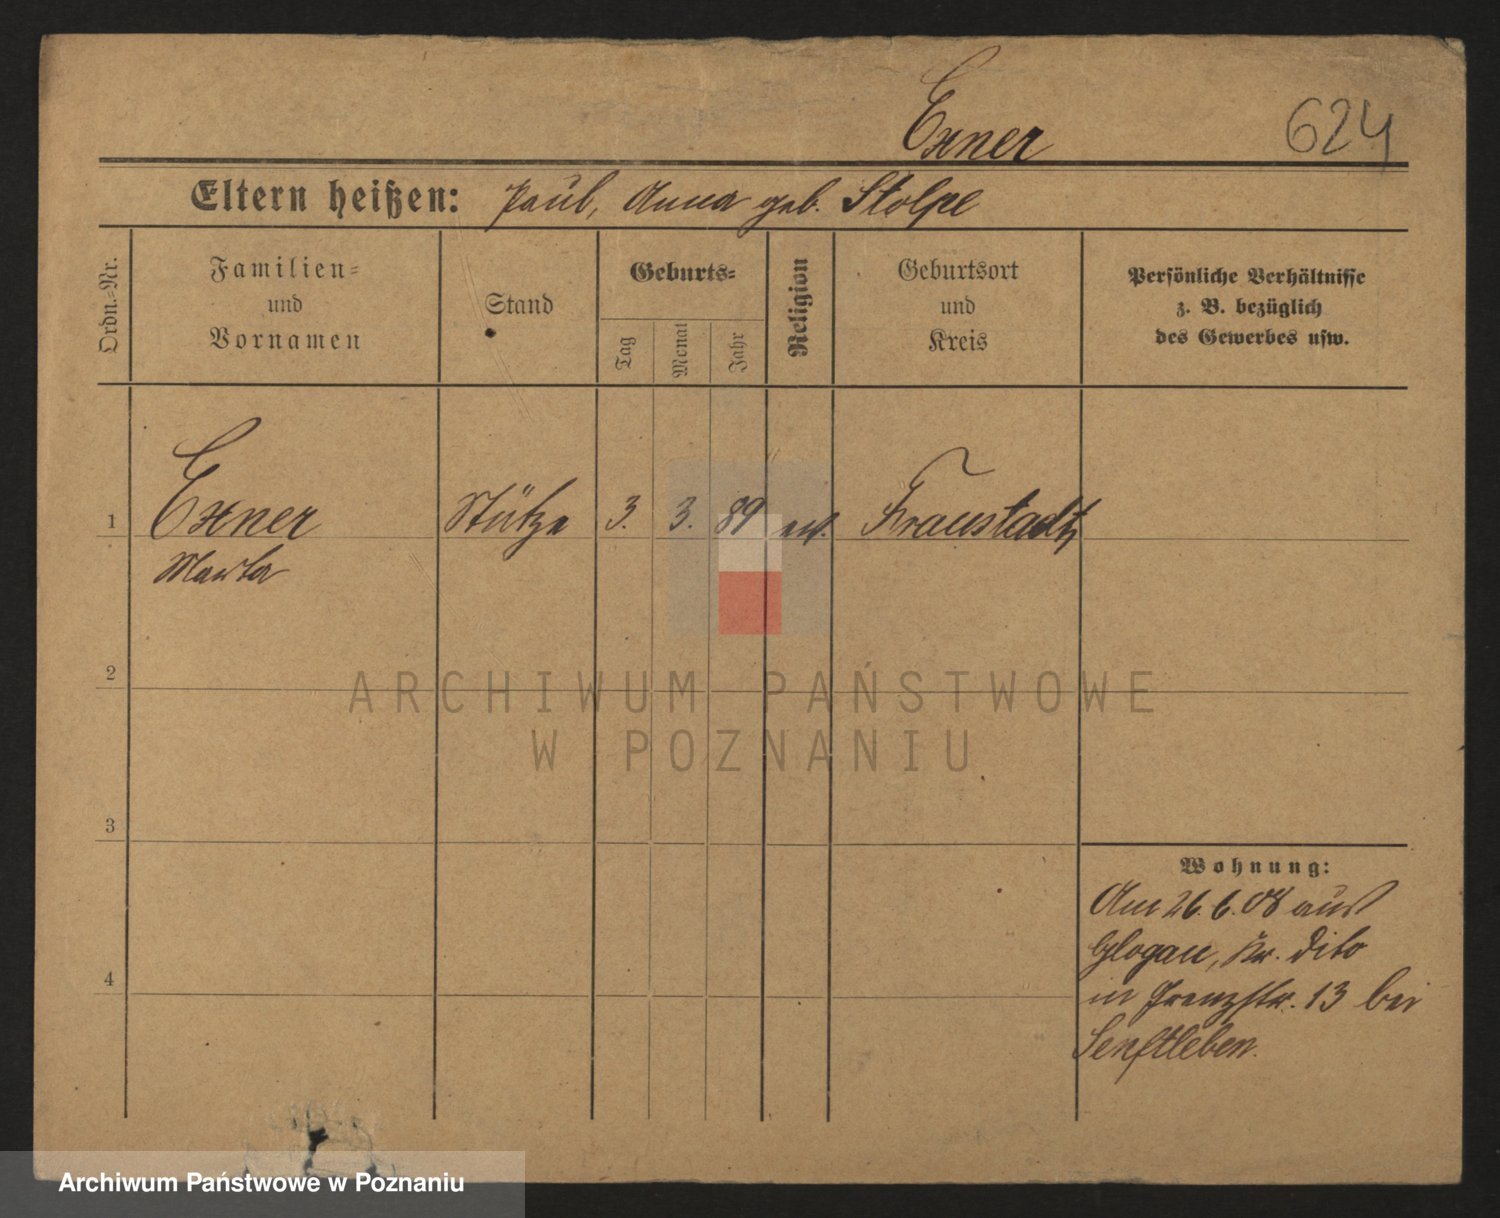 Exner
624
Eltern heißen: Paul, Anna geb. Stolpe
Ordn.-Nr.
Familien-
und
Vornamen
Stand
Geburts-
Tag
Monat
Jahr
Religion
Geburtsort
und
Kreis
Persönliche Verhältnisse
z. B. bezüglich
des Gewerbes usw.
1 Exner Stütze 3. 3. 89 ev. Fraustadt
Martha
2
3
4
Wohnung:
Am 26.6.08 aus
Glogau, Kr. dito
in 13 bei
Senftleben.
ARCHIWUM PAŃSTWOWE
W POZNANIU
Archiwum Państwowe w Poznaniu